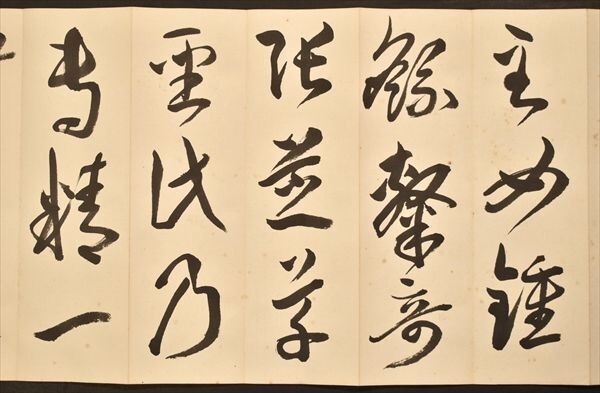 至如鍾
繇隷奇
張芝草
聖此乃
專精一